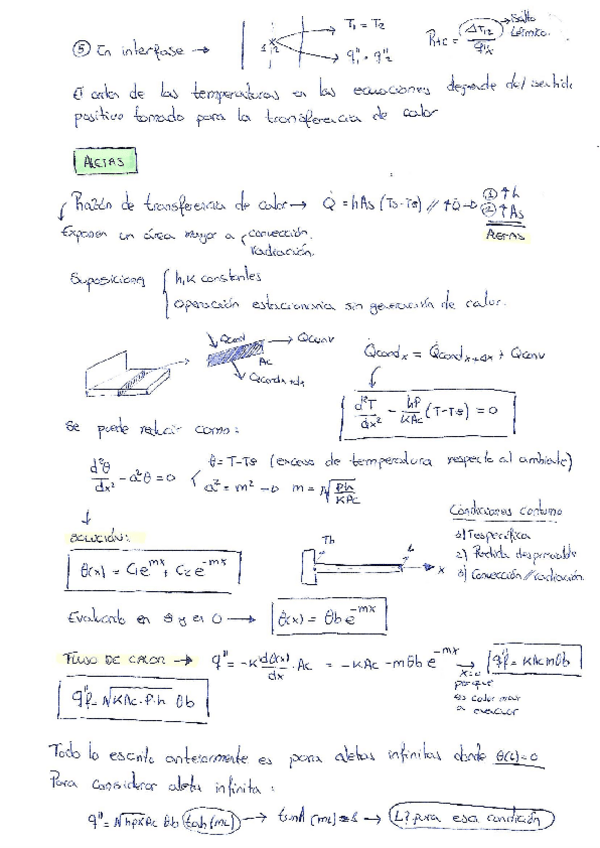 ⑤ En interfase → 1 2 T₁ = T₂ q₁'' = q₂'' Rtc = ΔT₁₂ / q''x → Salto térmico.
El orden de las temperaturas en las ecuaciones depende del sentido
positivo tomado para la transferencia de calor
ALETAS
Razón de transferencia de calor → Q̇ = hAs (Ts-T∞) // ↑Q̇ → ① ↑h ② ↑As
ALETAS
Exponen un área mayor a convección. radiación.
Suposiciones { h, k constantes
operación estacionaria sin generación de calor.
Qcond → Qconv
Ac
Qcond x+dx
Q̇condx = Q̇condx+dx + Qconv
d²T/dx² - hP/KAc (T-T∞) = 0
Se puede reducir como:
d²θ/dx² - a²θ = 0 θ = T-T∞ (exceso de temperatura respecto al ambiente)
a² = m² → m = √(Ph/KAc)
SOLUCIÓN:
θ(x) = C₁e^mx + C₂e^-mx
Tb L x
Condiciones contorno
1) T específica
2) Perdida despreciable
3) Convección // radiación.
Evaluando en ∞ y en 0 → θ(x) = θb e^-mx
FLUJO DE CALOR → q'' = -K dθ(x)/dx · Ac = -KAc -mθb e^-mx → x=0 q''f = KAcmθb
porque es calor max a evacuar
q''f = √(KAc·P·h) θb
Todo lo escrito anteriormente es para aletas infinitas donde θ(L)=0
Para considerar aleta infinita:
q'' = √(hPKAc) θb tanh(mL) → tanh (mL) = 1 → L? para esa condición